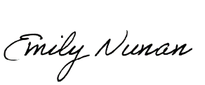 Emily Nunan